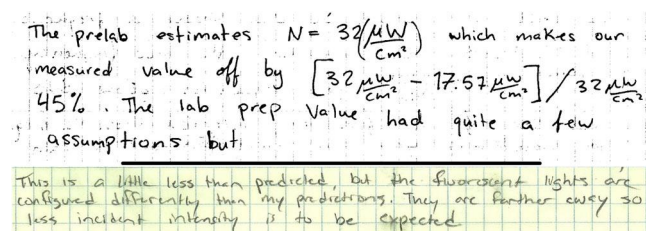 The prelab estimates N = 32(μW/cm²) which makes our
measured value off by [32 μW/cm² - 17.57 μW/cm²] / 32 μW/cm²
45%. The lab prep value had quite a few
assumptions but
This is a little less then predicted, but the fluorescent lights are
configured differently than my predictions. They are farther away so
less incident intensity is to be expected